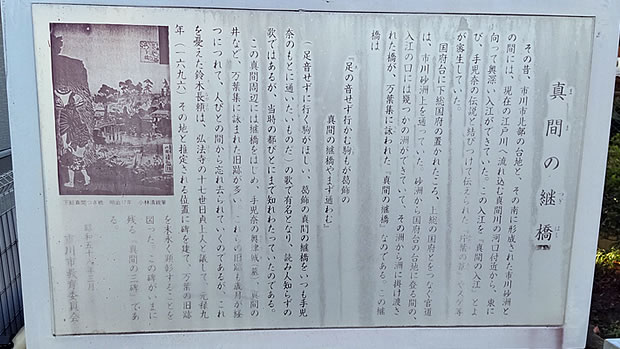 真間の継橋
ま ま つぎ はし
その昔、市川市北部の台地と、その南に形成された市川砂洲と
の間には、現在の江戸川へ流れ込む真間川の河口付近から、東に
向って奥深い入江ができていた。この入江を「真間の入江」とよ
び、手児奈の伝説と結びつけて伝えられた
が密生していた。
国府台に下総国府の置かれたころ、上総の国府とをつなぐ官道
は、市川砂洲上を通っていた。砂洲から国府台の台地に登る間の、
入江の口には幾つかの洲ができていて、その洲から洲に掛け渡さ
れた橋が、万葉集に詠われた「真間の継橋」なのである。この継
橋は
「足の音せず行かむ駒もが葛飾の
真間の継橋やまず通わむ」
(足音せずに行く駒がほしい、葛飾の真間の継橋をいつも手児
奈のもとに通いたいものだ)の歌で有名となり、読み人知らずの
歌ではあるが、当時の都びとにまで知れわたっていたのである。
この真間周辺には継橋をはじめ、手児奈の奥津城(墓)、真間の
井など、万葉集に詠まれた旧跡が多い
つにつれて、人びとの間から忘れ去られていくのであるが、これ
を憂えた鈴木長頼は、弘法寺の十七世日貞上人と議して、元禄九
年(一六九六)その地と推定される位置に碑を建て、万葉の旧跡
を末永く顕彰することを
図った。この碑がいまに
残る、真間の三碑、であ
る。
昭和五十八年三月
市川市教育委員会